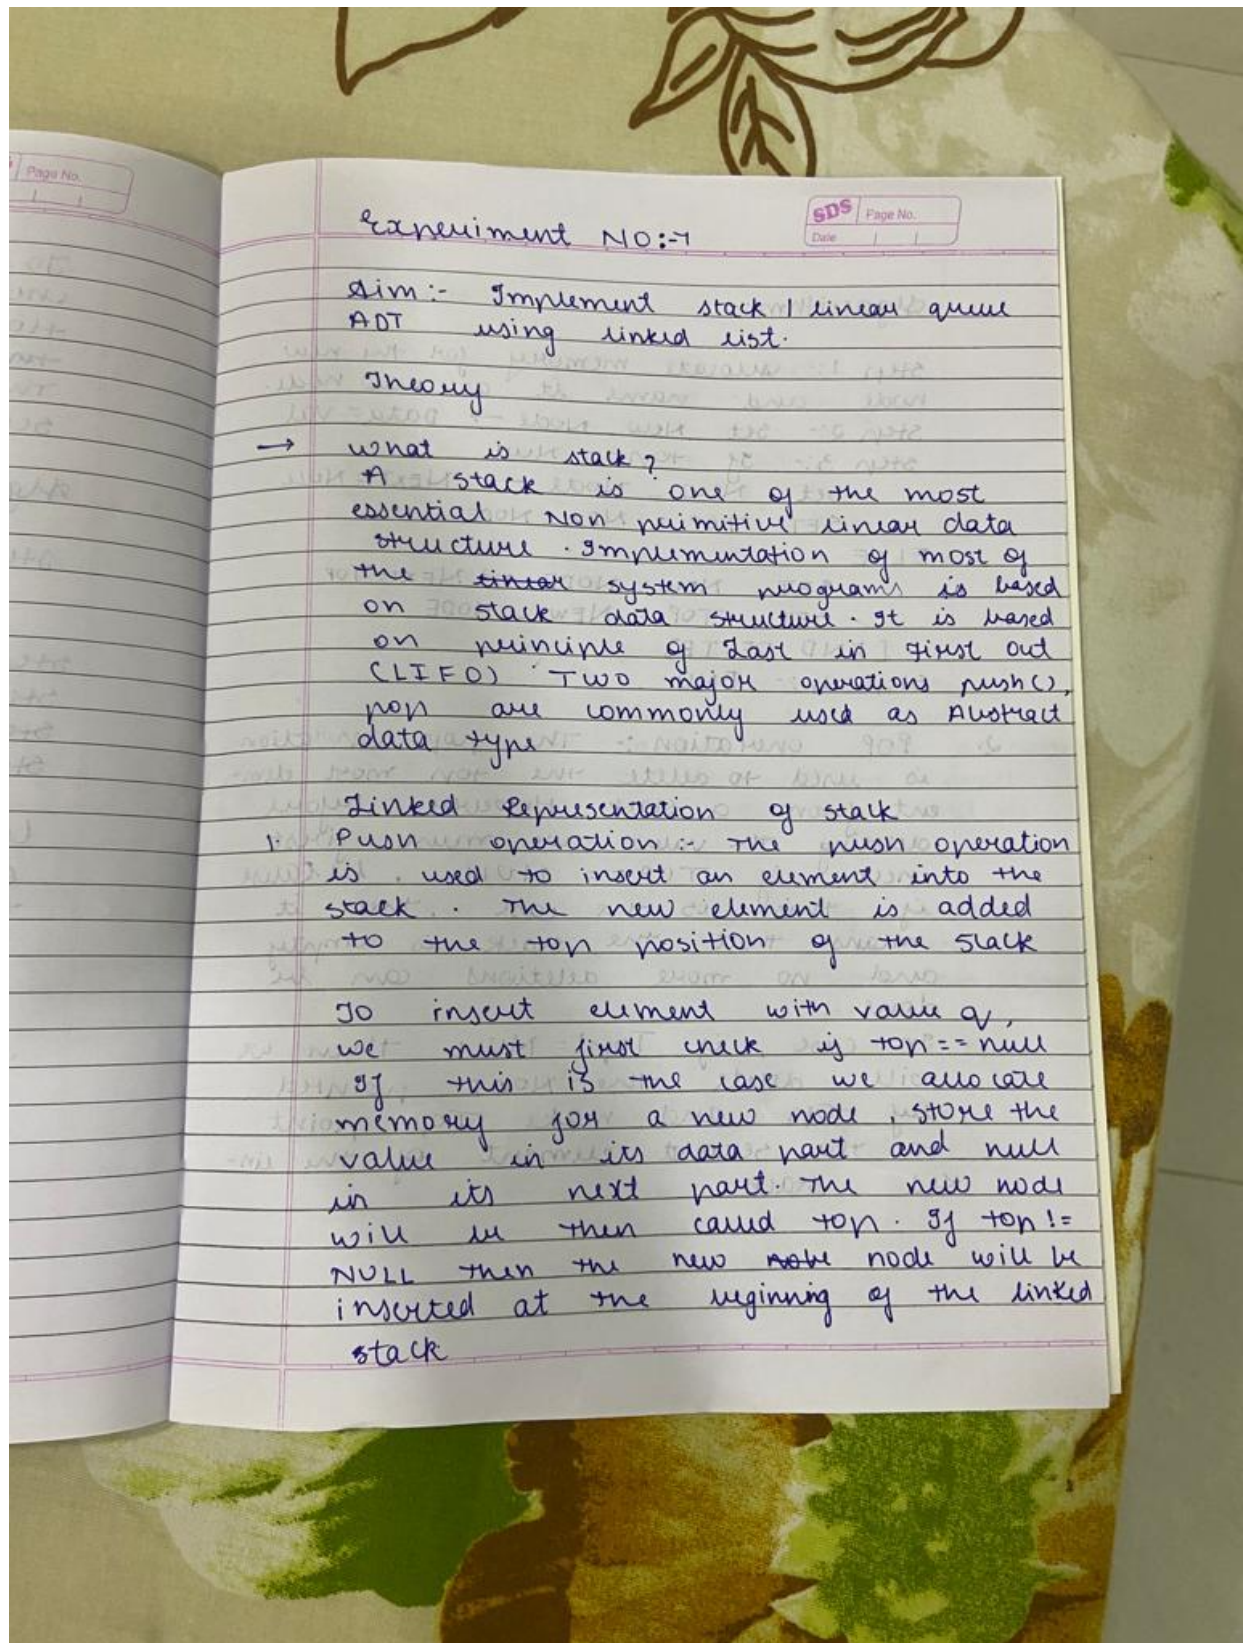 Page No.
SDS Page No.
Date
Experiment NO:-7
Aim:- Implement stack / linear queue
ADT using linked list.
Theory
→ what is stack?
A stack is one of the most
essential Non primitive linear data
structure. Implementation of most of
the linear system programs is based
on stack data structure. It is based
on principle of Last in First out
(LIFO) Two major operations push(),
pop are commonly used as Abstract
data type
Linked Representation of stack
1. Push operation:- The push operation
is used to insert an element into the
stack. The new element is added
to the top position of the stack
To insert element with value 9,
we must first check if top == null
If this is the case we allocate
memory for a new node, store the
value in its data part and null
in its next part. The new node
will be then called top. If top !=
NULL then the new node will be
inserted at the beginning of the linked
stack